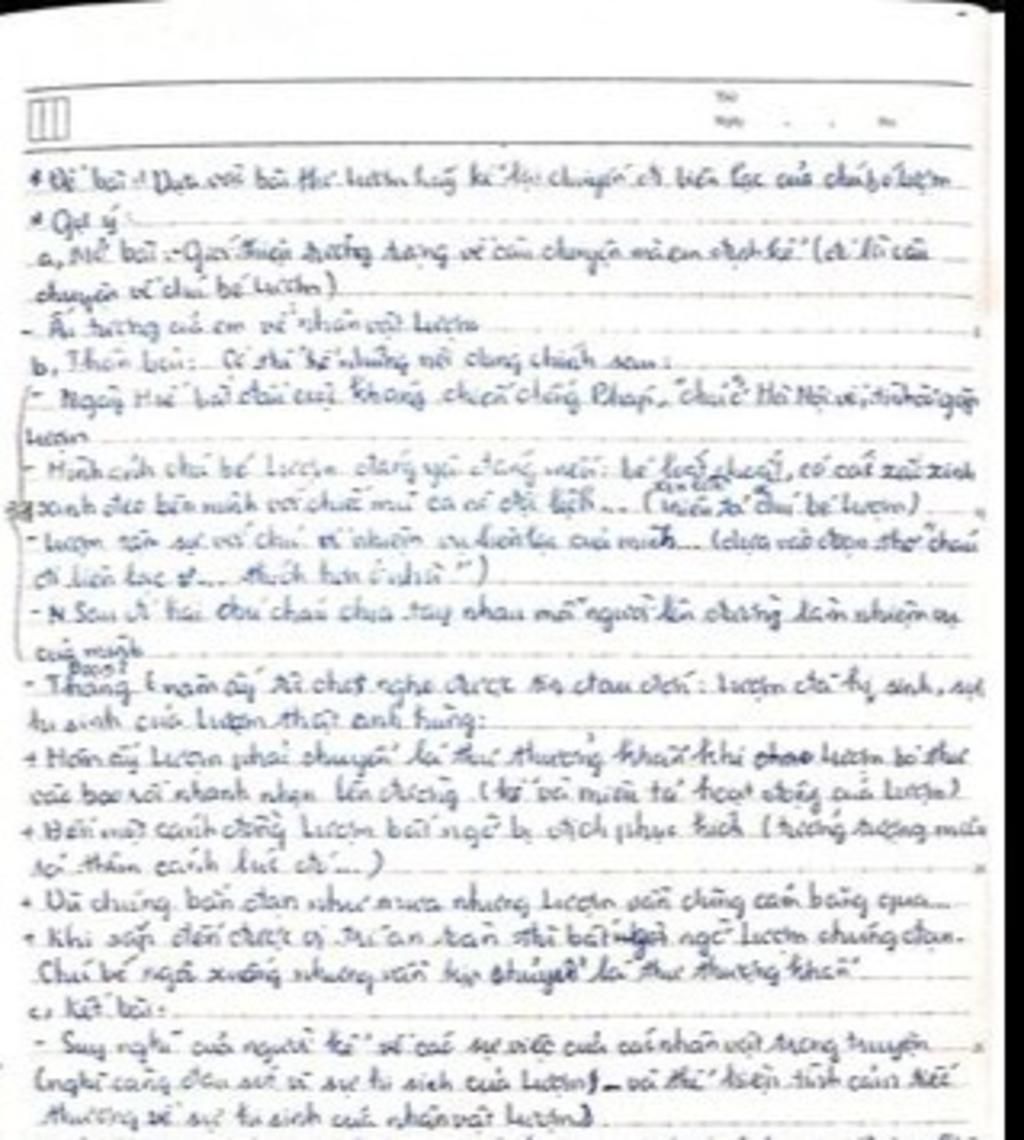 Thứ
Ngày
* Đề bài: Dựa vào bài thơ Lượm hãy kể lại chuyến đi liên lạc của chú bé Lượm
* Gợi ý:
a, Mở bài: - Giới thiệu tưởng tượng về câu chuyện mà em định kể (đó là câu
chuyện về chú bé Lượm)
- Ấn tượng của em về nhân vật Lượm
b, Thân bài: Có thể kể những nội dung chính sau:
- Ngày Huế bắt đầu cuộc kháng chiến chống Pháp, chú ở Hà Nội về, tình cờ gặp
Lượm
- Hình ảnh chú bé Lượm đáng yêu đáng mến: bé loắt choắt, có cái xắc xinh
xinh đeo bên mình với chiếc mũ ca lô đội lệch... (miêu tả chú bé Lượm)
- Lượm tâm sự với chú về nhiệm vụ liên lạc của mình... (dựa vào đoạn thơ "cháu
đi liên lạc ... thích hơn ở nhà")
- Sau đó hai chú cháu chia tay nhau mỗi người lên đường làm nhiệm vụ
của mình
- Tháng năm ấy tôi chợt nghe được tin đau đớn: Lượm đã hy sinh, sự
hi sinh của Lượm thật anh hùng:
+ Hôm ấy Lượm phải chuyển lá thư thượng khẩn khi Lượm bỏ thư
vào bao rồi nhanh nhẹn lên đường (kể và miêu tả hoạt động của Lượm)
+ Đến một cánh đồng Lượm bất ngờ bị địch phục kích (tưởng tượng miêu
tả thêm cảnh lúc đó...)
+ Dù chúng bắn đạn như mưa nhưng Lượm vẫn dũng cảm băng qua...
+ Khi sắp đến được vị trí an toàn thì bất ngờ Lượm chúng đạn.
Chú bé ngã xuống nhưng vẫn kịp chuyển lá thư thượng khẩn
c, Kết bài:
- Suy nghĩ của người kể về các sự việc của các nhân vật trong truyện
(nghĩ càng đau xót vì sự hi sinh của Lượm) - và thể hiện tình cảm tiếc
thương về sự hi sinh của nhân vật Lượm).